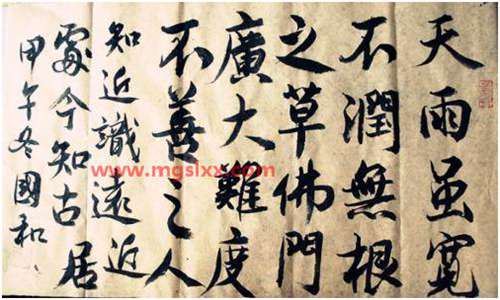 天雨虽寬
不潤無根
之草佛門
廣大難度
不善之人
知近識遠近
處今知古居
甲午冬國和
www.mgslxx.com